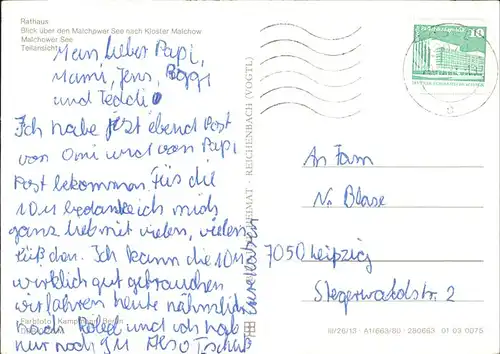 Rathaus
Blick über den Malchower See nach Kloster Malchow
Malchower See
Teilansicht
Mein lieber Papi,
Mami, Jens, Peggi
und Teddi
Ich habe jtst ebend Post
von Omi und von Papi
Post bekommen. Für die
10M bedanke ich mich
ganz lieb mit vielen, vielen
süßchen. Ich kann die 10M
wirklich gut gebrauchen
wir fahren heute nähmlich
nach Röbel und ich hab
nur noch 5M Also Tschüß
REICHENBACH (VOGTL)
An Fam
N. Blase
7050 Leipzig
Stegerwaldstr. 2
III/26/13 A1/663/80 280663 01 03 0075
18